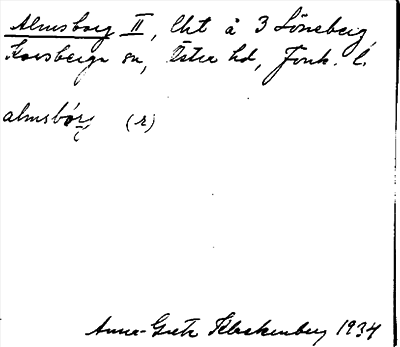 Almsborg II, lht å 3 Löneberg,
Korsberga sn, Östra hd, Jönk. l.
almsbórj (r)
Anna-Greta Klackenberg 1934